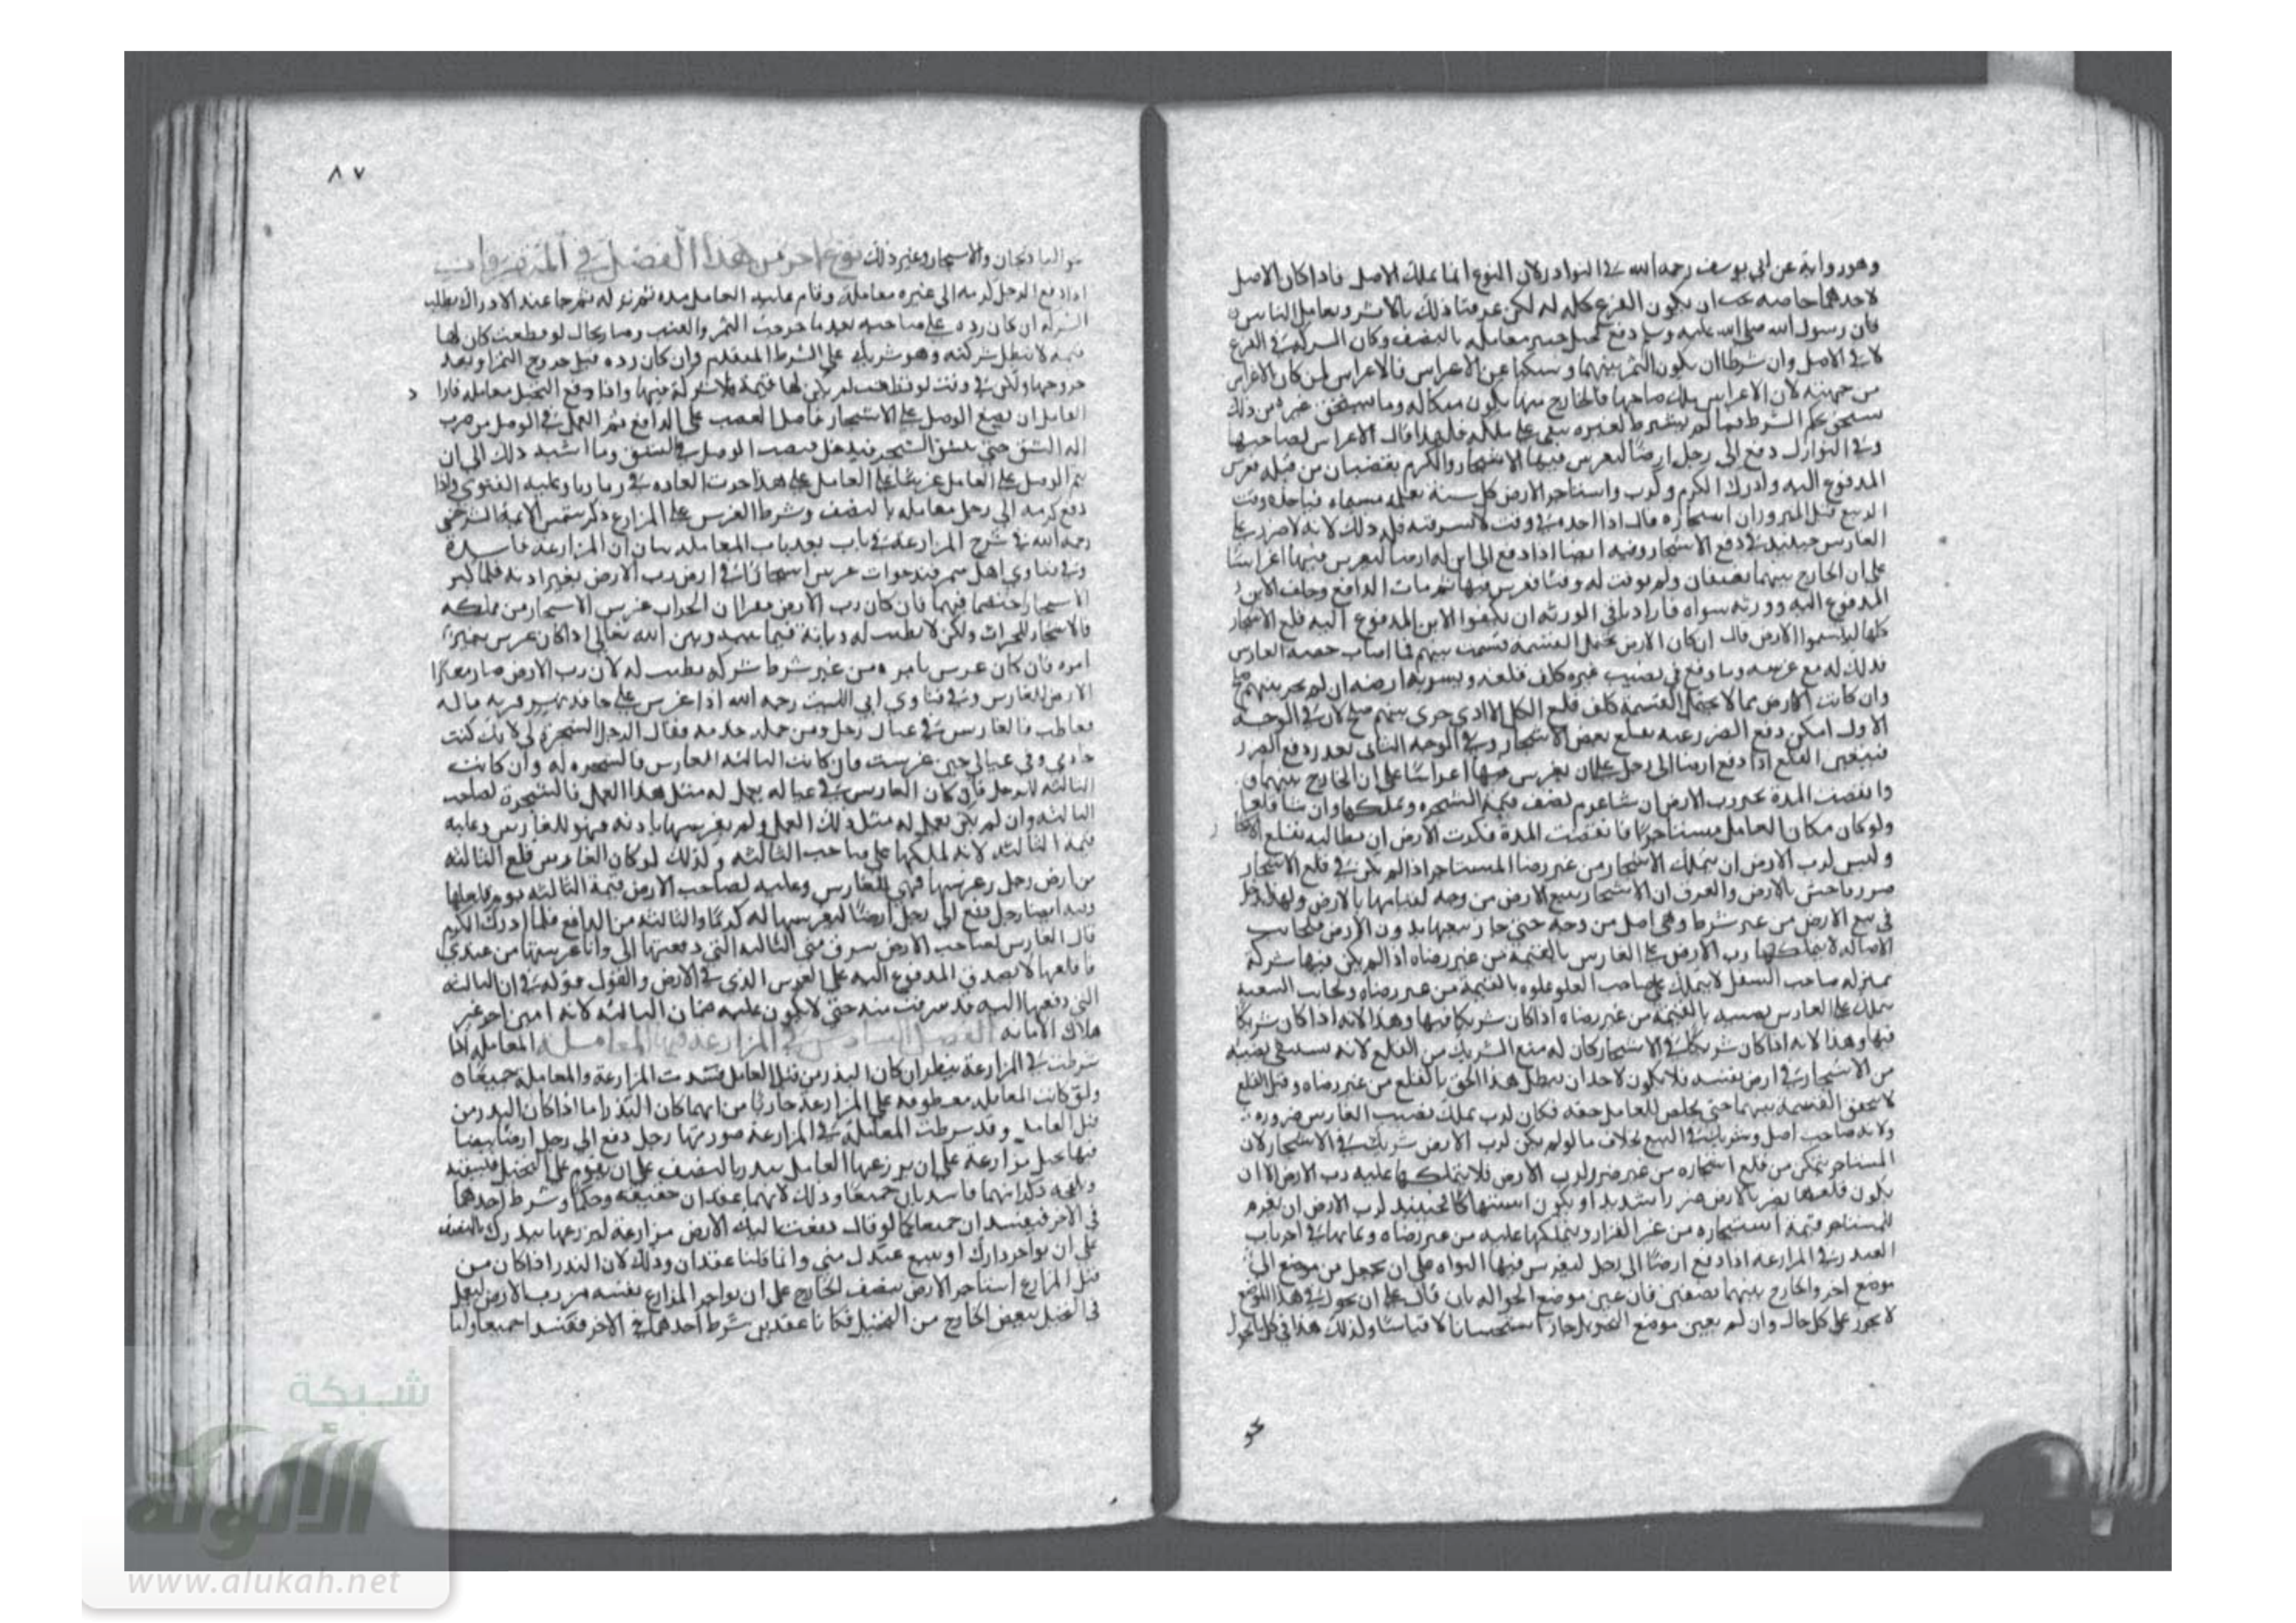 وهو رواية عن ابي يوسف رحمه الله في النوادر لان النوع انما يملك الاصل فاذا كان الاصل
لاحدهما خاصة يجب ان يكون الفرع كله له لكن عرفنا ذلك بالاثر وتعامل الناس
فان رسول الله صلى الله عليه وسلم دفع نخيل خيبر معاملة بالنصف وكان الشركة في الفرع
لا في الاصل وان شرطا ان يكون الثمر بينهما وسكتا عن الاغراس فالاغراس لمن كان الاغراس
من جهته لان الاغراس ملك صاحبها فالخارج منها يكون
يستحق بحكم الشرط فما لم يشترط لغيره يبقى على ملكه فلهذا قال الاغراس لصاحبها
وفي النوازل دفع الى رجل ارضا ليغرس فيها الاشجار والكرم بقضبان من قبله فغرس
المدفوع اليه وادرك الكرم واستاجر الارض كل سنة
الغارس حينئذ في دفع الاشجار وفيه ايضا اذا دفع الى ابن له ارضا ليغرس فيها اغراسا
على ان الخارج بينهما نصفان ولم يوقت له وقتا فغرس فيها ثم مات الدافع وخلف الابن
المدفوع اليه وورثة سواه فاراد باقي الورثة ان يكلفوا الابن المدفوع اليه قلع الاشجار
كلها ليقتسموا الارض قال ان كان الارض تحتمل القسمة قسمت بينهم فما اصاب حصة الغارس
فذلك له مع غرسه وما وقع في نصيب غيره كلف قلعه وتسوية ارضه ان لم يجر بينهم صلح
وان كانت الارض مما لا يحتمل القسمة كلف قلع الكل الا اذا جرى بينهم صلح لان في الوجه
الاول امكن دفع الضرر عنه بقلع بعض الاشجار وفي الوجه الثاني تعذر دفع الضرر
فيتعين القلع اذا دفع ارضا الى رجل على ان يغرس فيها اغراسا على ان الخارج بينهما
وانقضت المدة يخير رب الارض ان شا غرم نصف قيمة الشجرة ويملكها وان شا قلعها
ولو كان مكان العامل مستاجرا فانقضت المدة فلرب الارض ان يطالبه بقلع الاشجار
وليس لرب الارض ان يتملك الاشجار من غير رضا المستاجر اذا لم يكن في قلع الاشجار
ضرر فاحش بالارض والفرق ان الاشجار تبيع الارض من وجه لقيامها بالارض ولهذا تدخل
في بيع الارض من غير شرط وهي اصل من وجه حتى جاز بيعها بدون الارض فلجانب
الاصالة لا يتملكها رب الارض على الغارس بالقيمة من غير رضاه اذا لم يكن فيها شركة
بمنزلة صاحب السفل لا يتملك على صاحب العلو علوه بالقيمة من غير رضاه ولجانب التبعية
يتملك على الغارس نصيبه بالقيمة من غير رضاه اذا كان شريكا فيها وهذا لانه اذا كان شريكا
فيها وهذا لانه اذا كان شريكا في الاشجار كان له منع الشريك من القلع لانه يستبقي نصيبه
من الاشجار في ارض نفسه فلا يكون لاحد ان يبطل هذا الحق بالقلع من غير رضاه وقبل القلع
لا تتحقق القسمة بينهما حتى يخلص للعامل حقه فكان لرب تملك نصيب الغارس ضرورة
ولانه صاحب اصل وشريك في البيع بخلاف ما لو لم يكن لرب الارض شريك في الاشجار لان
المستاجر يتمكن من قلع اشجاره من غير ضرر لرب الارض فلا يتملكها عليه رب الارض الا ان
يكون قلعها يضر بالارض ضررا شديدا او يكون فحينئذ لرب الارض ان يغرم
للمستاجر قيمة اشجاره ويتملكها عليه من غير رضاه وتمامها في اخر باب
العذر في المزارعة اذا دفع ارضا الى رجل ليغرس فيها النواة على ان يحول من موضع الى
موضع اخر والخارج بينهما نصفين فان عين موضع الحوالة بان قال على ان تحول في هذا الموضع
لا يجوز على كل حال وان لم يعين موضع التحويل جاز استحسانا لا قياسا وكذلك هذا في كل ما يحول
نحو
٨٧
نحو الباذنجان والاشجار وغير ذلك نوع اخر من هذا الفصل في المتفرقات
اذا دفع الرجل كرمه الى غيره معاملة وقام عليه العامل مدة ثم تركه ثم جا عند الادراك يطلب
الشركة ان كان رده على صاحبه بعد ما خرجت الثمر والعنب وصار بحال لو قطعت كان لها
قيمة لا تبطل شركته وهو شريك على الشرط المتقدم وان كان رده قبل خروج الثمر او بعد
خروجها ولكن في وقت لو قطعت لم يكن لها قيمة فلا شركة فيها واذا دفع النخيل معاملة فاراد
العامل ان يضع الوصل على الاشجار فاصل القضيب على الدافع ثم العمل في الوصل من ضرب
الة الشق حتى يشق الشجر فيدخل قضيب الوصل في الشق وما اشبه ذلك الى ان
يتم الوصل على العامل على هذا جرت العادة في ديارنا وعليه الفتوى واذا
دفع كرمه الى رجل معاملة بالنصف وشرط الغرس على المزارع ذكر شمس الائمة السرخسي
رحمه الله في شرح المزارعة في باب بعد باب المعاملة بيان ان المزارعة فاسدة
وفي فتاوي اهل سمرقند غرس اشجارا في ارض رب الارض بغير اذنه فلما كبر
الاشجار اختصما فيها فان كان رب الارض مقرا ان غرس الاشجار من ملكه
ولكن لا يطيب له ديانة فيما بينه وبين الله تعالى اذا كان غرس بغير
امره فان كان غرس بامره من غير شرط شركة يطيب له لان رب الارض صار معيرا
الارض للغارس وفي فتاوي ابي الليث رحمه الله اذا غرس على حافة نهر قرية تالة
فالغارس في عيال رجل ومن جملة خدمه فقال الرجل الشجرة لي لانك كنت
خادمي وفي عيالي حين غرست فان كانت التالة للغارس فالشجرة له وان كانت
التالة للرجل فان كان الغارس في عياله يعمل له مثل هذا العمل فالشجرة لصاحب
التالة وان لم يكن يعمل له مثل ذلك العمل ولم يغرسها باذنه فهو للغارس وعليه
قيمة التالة لانه تملكها على صاحب التالة وكذلك لو كان الغارس قلع التالة
من ارض رجل وغرسها فهي للغارس وعليه لصاحب الارض قيمة التالة يوم قلعها
وفيه ايضا رجل دفع الى رجل ارضا ليغرسها له كرما والتالة من الدافع فلما ادرك الكرم
قال الغارس لصاحب الارض سرق مني التالة التي دفعتها الي وانا غرستها من عندي
فاقلعها لا يصدق المدفوع اليه على الغرس الذي في الارض والقول قوله في ان التالة
التي دفعها اليه قد سرقت منه حتى لا يكون عليه ضمان التالة لانه امين اخبر عن
هلاك الامانة الفصل السادس في المزارعة فيها المعاملة المعاملة اذا
شرطت في المزارعة ينظر ان كان البذر من قبل العامل فسدت المزارعة والمعاملة جميعا
ولو كانت المعاملة معطوفة على المزارعة جازتا من ايهما كان البذر اما اذا كان البذر من
قبل العامل وقد شرطت المعاملة في المزارعة صورتها رجل دفع الى رجل ارضا بيضا
فيها نخيل مزارعة على ان يزرعها العامل ببذره بالنصف على ان يقوم على النخيل فيسقيه
ويلقحه ذكر انهما فاسدان جميعا وذلك لانهما عقدان حقيقة وحكما وشرط احدهما
في الاخر فيفسدان جميعا كما لو قال دفعت اليك الارض مزارعة لتزرعها ببذرك بالنصف
على ان تواجر دارك او تبيع عبدك مني وانما قلنا عقدان وذلك لان البذر اذا كان من
قبل المزارع استاجر الارض بنصف الخارج على ان يواجر المزارع نفسه من رب الارض ليعمل
في النخيل ببعض الخارج من النخيل فكانا عقدين شرط احدهما في الاخر ففسدا جميعا ولنا
شبكة
الألوكة
www.alukah.net